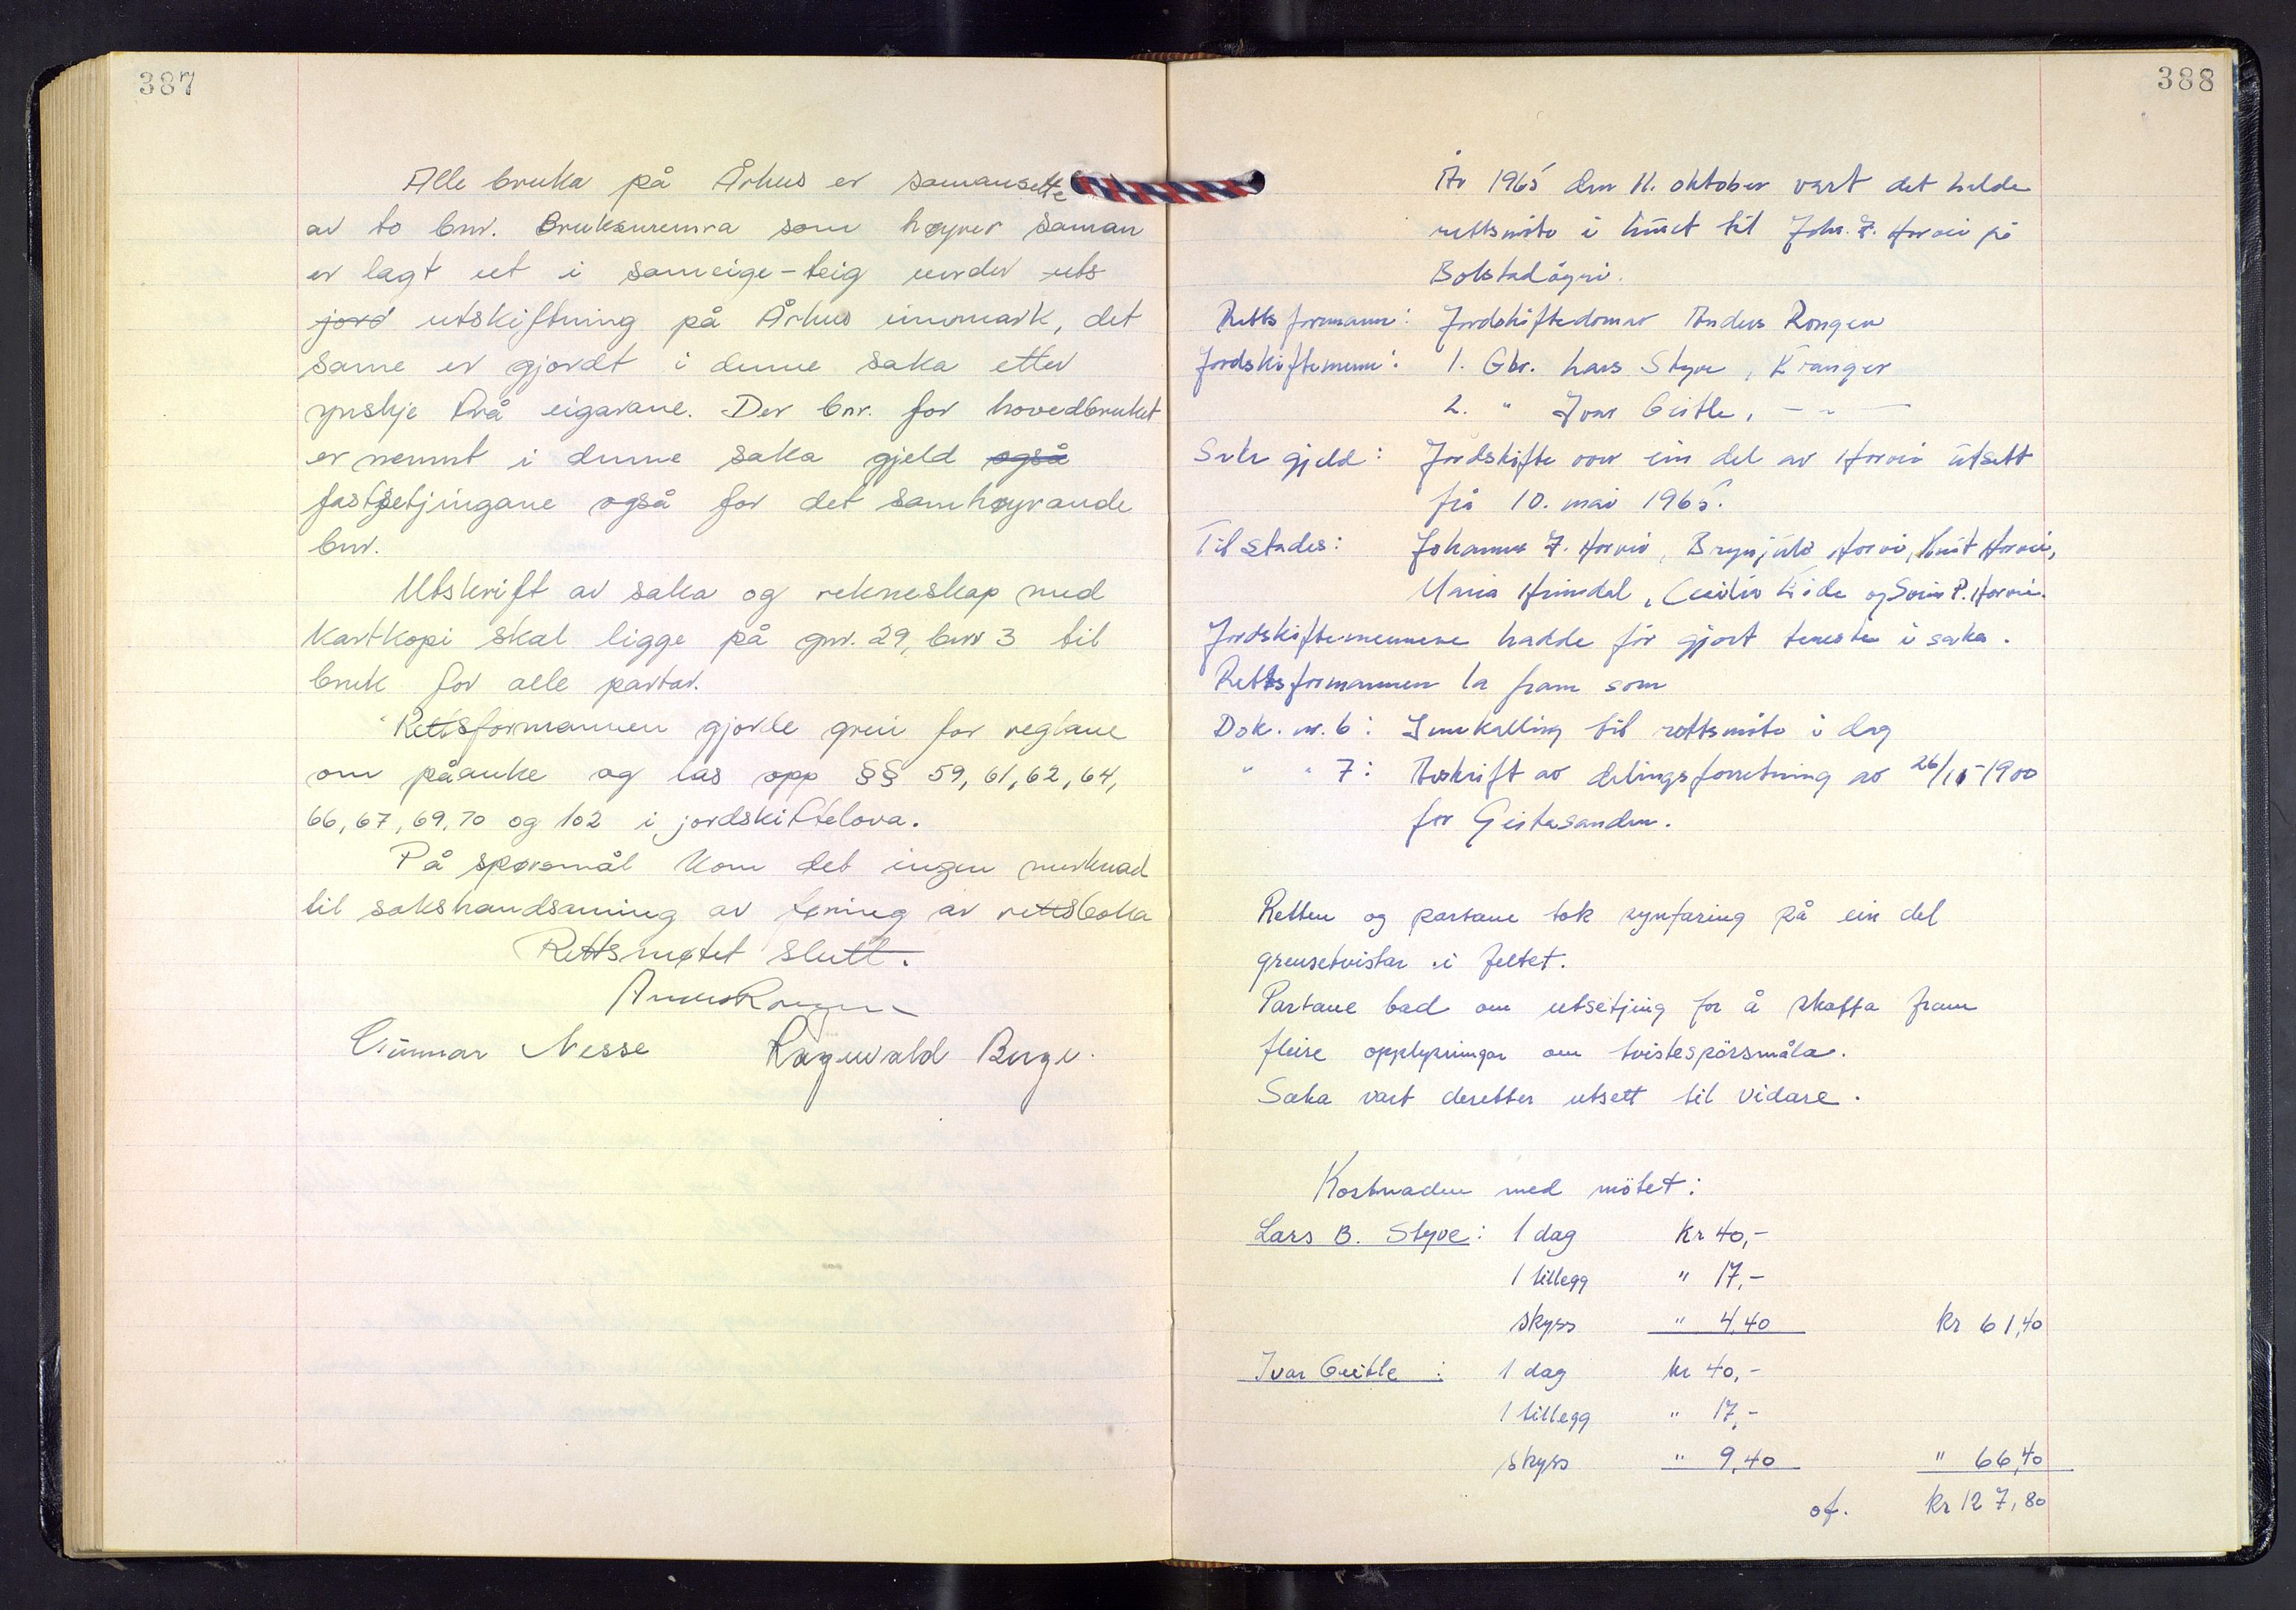 387
Alle bruka på Århus er samansette
av to bnr. Bruksnumra som høyrer saman
er lagt ut i sameige-teig under uts
jord utskiftning på Århus innmark, det
same er gjordt i denne saka etter
ynskje frå eigarane. Der bnr. for hovedbruket
er nemnt i denne saka gjeld også
fastsetjingane også for det samhøyrande
bnr.
Utskrift av saka og rekneskap med
kartkopi skal ligge på gnr. 29, bnr 3 til
bruk for alle partar.
Rettsformannen gjorde grei for reglane
om påanke og las opp §§ 59, 61, 62, 64,
66, 67, 69, 70 og 102 i jordskiftelova.
På spørsmål kom det ingen merknad
til sakshandsaming av føring av rettsboka
Rettsmøtet slutt.
Anders Rongen
Gunnar Nesse Ragnvald Berge.
388
År 1965 den 11. oktober vart det halde
rettsmöte i huset til Johs. J. Horvei på
Bolstadöyri.
Rettsformann: Jordskiftedomar Anders Rongen
Jordskiftemenn: 1. Gbr. Lars Styve, Evanger
2. " Ivar Geitle, - " -
Saka gjeld: Jordskifte over ein del av Horvei utsett
frå 10. mai 1965.
Til stades: Johannes J. Horvei, Brynjulv Horvei, Knut Horvei,
Maria Heimdal, Cecilia Eide og P. Horvei.
Jordskiftemennene hadde för gjort teneste i saka.
Rettsformannen la fram som
Dok. nr. 6: Innkalling til rettsmöte i dag
" " 7: Avskrift av delingsforretning av 26/10-1900
for Geitasanden.
Retten og partane tok synfaring på ein del
grensetvistar i feltet.
Partane bad om utsetjing for å skaffa fram
fleire opplysningar om tvistespörsmåla.
Saka vart deretter utsett til vidare.
Kostnaden med mötet:
Lars B. Styve: 1 dag kr 40,-
1 tillegg " 17,-
skyss " 4,40 kr 61,40
Ivar Geitle: 1 dag kr 40,-
1 tillegg " 17,-
skyss " 9,40 " 66,40
of. kr 127,80